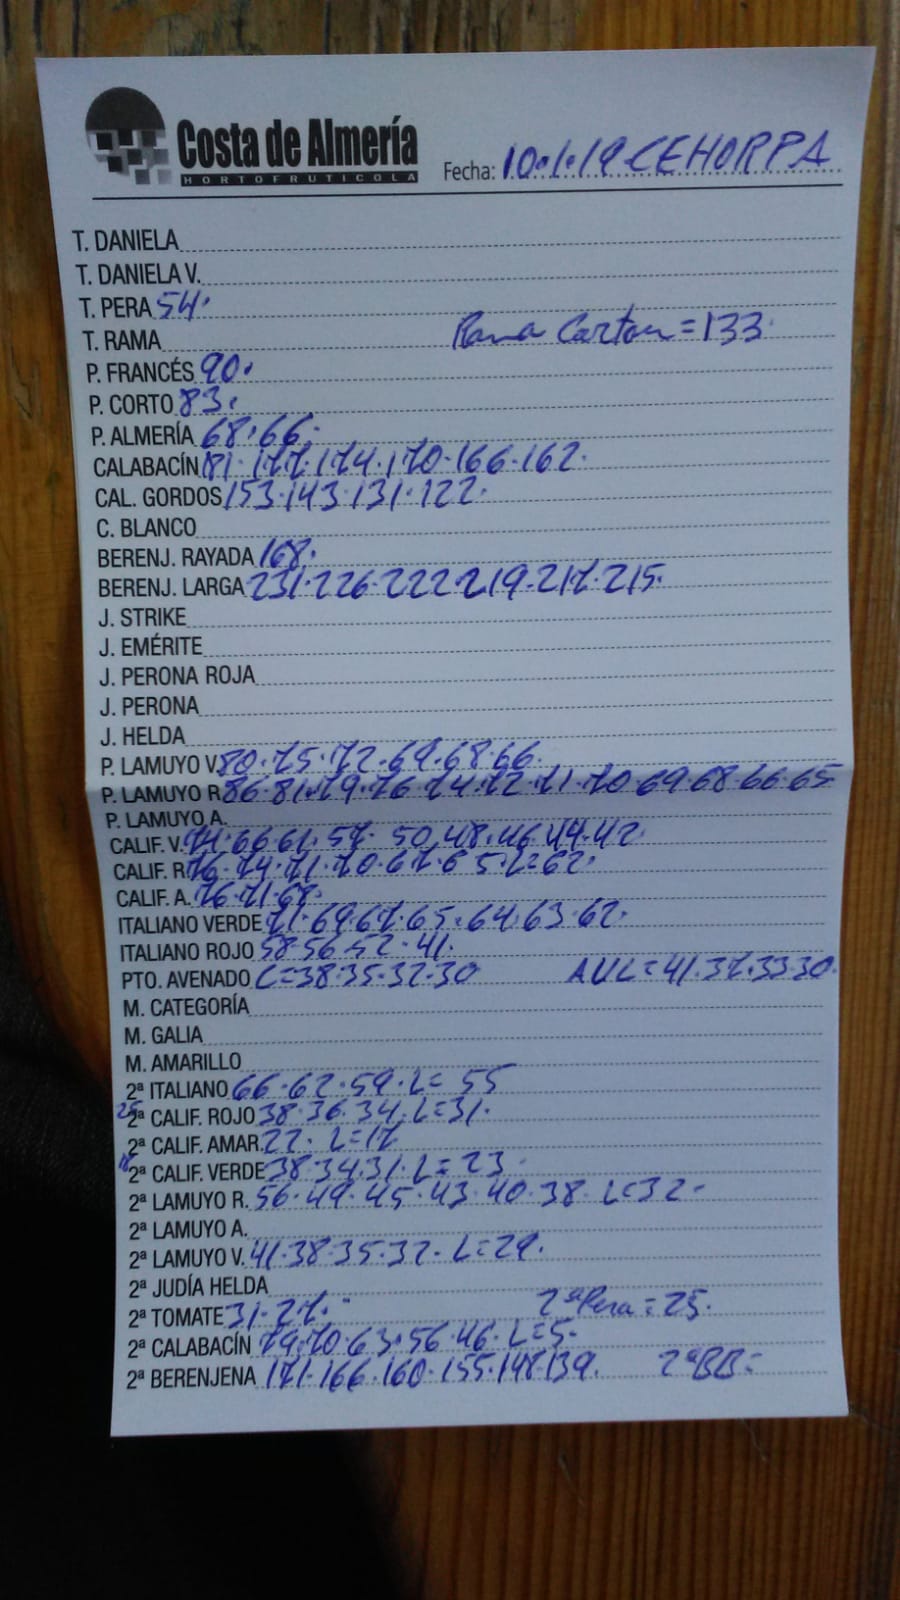 Costa de Almería
HORTOFRUTICOLA
Fecha: 10.1.19 CEHORPA
T. DANIELA
T. DANIELA V.
T. PERA 54.
T. RAMA Rama Carton = 133.
P. FRANCÉS 90.
P. CORTO 83.
P. ALMERÍA 68.66.
CALABACÍN 181.177.174.170.166.162.
CAL. GORDOS 153.143.131.122.
C. BLANCO
BERENJ. RAYADA 168.
BERENJ. LARGA 231.226.222.219.217.215.
J. STRIKE
J. EMÉRITE
J. PERONA ROJA
J. PERONA
J. HELDA
P. LAMUYO V. 80.75.72.69.68.66.
P. LAMUYO R. 86.81.79.76.74.72.71.70.69.68.66.65
P. LAMUYO A.
CALIF. V. 74.66.61.57.50.48.46.44.42.
CALIF. R. 76.74.71.70.67.65.L=62.
CALIF. A. 76.71.68.
ITALIANO VERDE 71.69.67.65.64.63.62.
ITALIANO ROJO 58.56.52.41.
PTO. AVENADO L=38.35.32.30 AUL=41.37.33.30.
M. CATEGORÍA
M. GALIA
M. AMARILLO
2ª ITALIANO 66.62.59.L=55
25 2ª CALIF. ROJO 38.36.34.L=31.
2ª CALIF. AMAR. 22. L=17
18 2ª CALIF. VERDE 38.34.31.L=23.
2ª LAMUYO R. 56.49.45.43.40.38.L=32-
2ª LAMUYO A.
2ª LAMUYO V. 41.38.35.32.L=29.
2ª JUDÍA HELDA
2ª TOMATE 31.27. 2ª Pera=25.
2ª CALABACÍN 79.70.63.56.46.L=5.
2ª BERENJENA 171.166.160.155.148.139. 2ªBB=